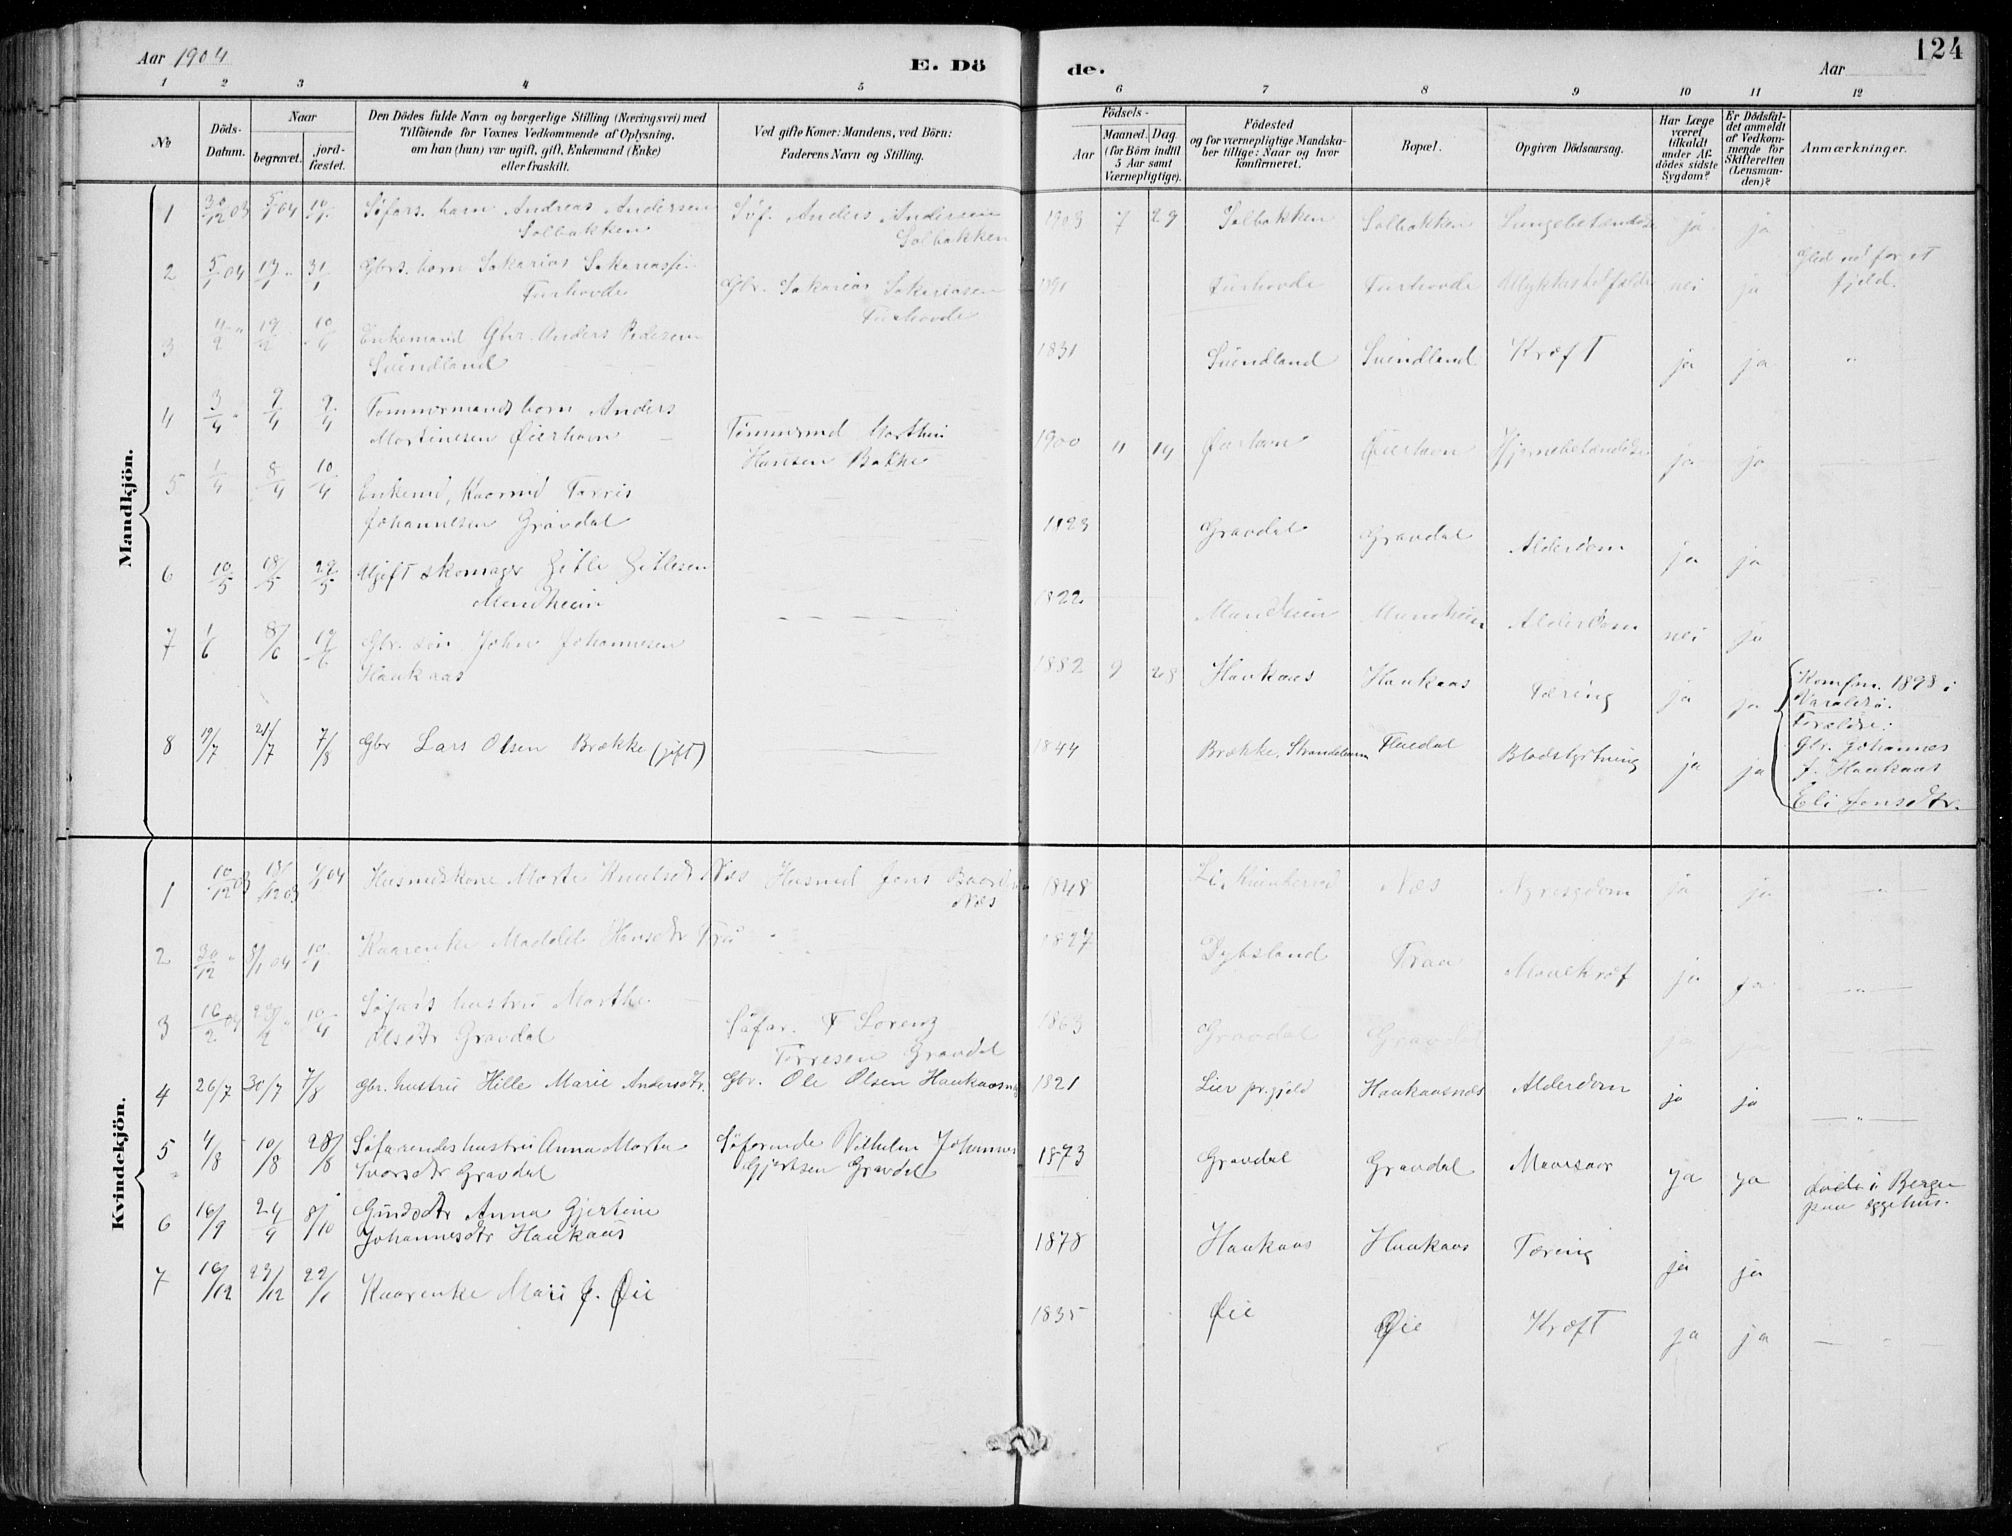 Aar 1904
E. Dö
de.
Aar
124
1 2 3 4 5 6 7 8 9 10 11 12
No
Döds-
Datum.
Naar
begravet.
jord-
fæstet.
Den Dödes fulde Navn og borgerlige Stilling (Næringsvei) med
Tilföiende for Voxnes Vedkommende af Oplysning,
om han (hun) var ugift, gift, Enkemand (Enke)
eller fraskilt.
Ved gifte Koner: Mandens, ved Börn:
Faderens Navn og Stilling.
Födsels-
Aar
Maaned. Dag.
(for Börn indtil
5 Aar samt
Værnepligtige).
Födested
og for værnepligtige Mandska-
ber tillige: Naar og hvor
konfirmeret.
Bopæl.
Opgiven Dödsaarsag.
Har Læge
været
tilkaldt
under Af-
dödes sidste
Sygdom?
Er Dödsfal-
det anmeldt
af Vedkom-
mende for
Skifteretten
(Lensman-
den)?
Anmærkninger.
Mandkjön.
1 30/12 03 5/1 04 10/1 Søfars. barn Andreas Andersen Søf. Anders Andersen 1903 7 29 Solbakken Solbakken Lungebetændelse ja ja
Solbakken Solbakken
2 5/1 04 13/1 " 31/1 Gbrs. barn Sakarias Sakariassen Gbr. Sakarias Sakariasen Furhovde Furhovde Ulykkestilfælde nei ja Gled ud for et
Furhovde Furhovde fjeld.
3 4/2 " 19/2 10/4 Enkemand Gbr. Anders Pedersen 1831 Svindland Svindland Kræft ja ja "
Svindland
4 3/4 " 9/4 9/4 Tømmermands barn Anders Tømmermd Marthin 1900 " 19 Øierhavn Øierhavn Hjernebetændelse ja ja
Martinesen Øierhavn Hansen Bakke
5 1/4 8/4 10/4 Enkemd, Kaarmd Torris 1823 Gravdal Gravdal Alderdom ja ja
Johannesen Gravdal
6 10/5 18/5 29/5 Ugift skomager Gitle Gitlesen 1822 Mundheim Mundheim Alderdom nei ja
Mundheim
7 1/6 8/6 19/6 Gbr. søn John Johannesen 1882 9 28 Haukaas Haukaas Tæring ja ja Komfm. 1898 i
Haukaas Varaldsø.
Forældre:
Gbr. Johannes
J. Haukaas
Eli Jensdtr.
8 19/7 21/7 7/8 Gbr Lars Olsen Brække (gift) 1844 Brække, Strandebarm Fluedal Blodstyrtning ja ja
Kvindekjön.
1 10/12 03 18/12 03 1/1 04 Husmdskone Marte Knutsdtr Næs Husmd Jens Baardsen 1848 Li, Kvinherred Næs Nyresygdom ja ja "
Næs
2 30/12 " 8/1 04 10/1 Kaarenke Maddeli Hansdtr Traa 1827 Dybsland Traa Mavekræf ja ja "
3 16/2 04 23/2 " 10/4 Søfars hustru Marthe Søfar. T Lorenz 1863 Gravdal Gravdal
Olsdtr Gravdal Torresen Gravdal
4 26/7 30/7 7/8 Gbr. hustru Hille Marie Andersdtr. Gbr. Ole Olsen Haukaasnæs 1821 Lier prgjeld Haukaasnæs Alderdom ja ja "
5 4/8 10/8 28/8 Søfarendes hustru Anna Marta Søfarende Vilhelm Johannes 1873 Gravdal Gravdal Mavesaar ja ja døde i Bergen
Ivarsdtr Gravdal Gjertsen Gravdal paa sygehus.
6 16/9 24/9 8/10 Gaardsdtr Anna Gjertine 1878 Haukaas Haukaas Tæring ja ja
Johannesdtr Haukaas
7 16/12 23/12 22/1 Kaarenke Mari J. Øie 1835 Øie Øie Kræft ja ja